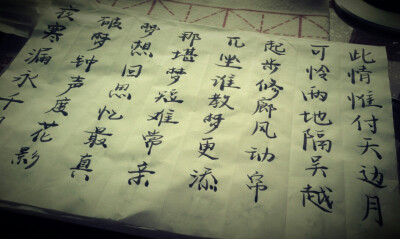 此情惟付天边月
可怜两地隔吴越
起步修廊风动帘
兀坐谁教梦更添
那堪梦短难常亲
梦想回思忆最真
破梦钟声度花影
夜寒漏永千